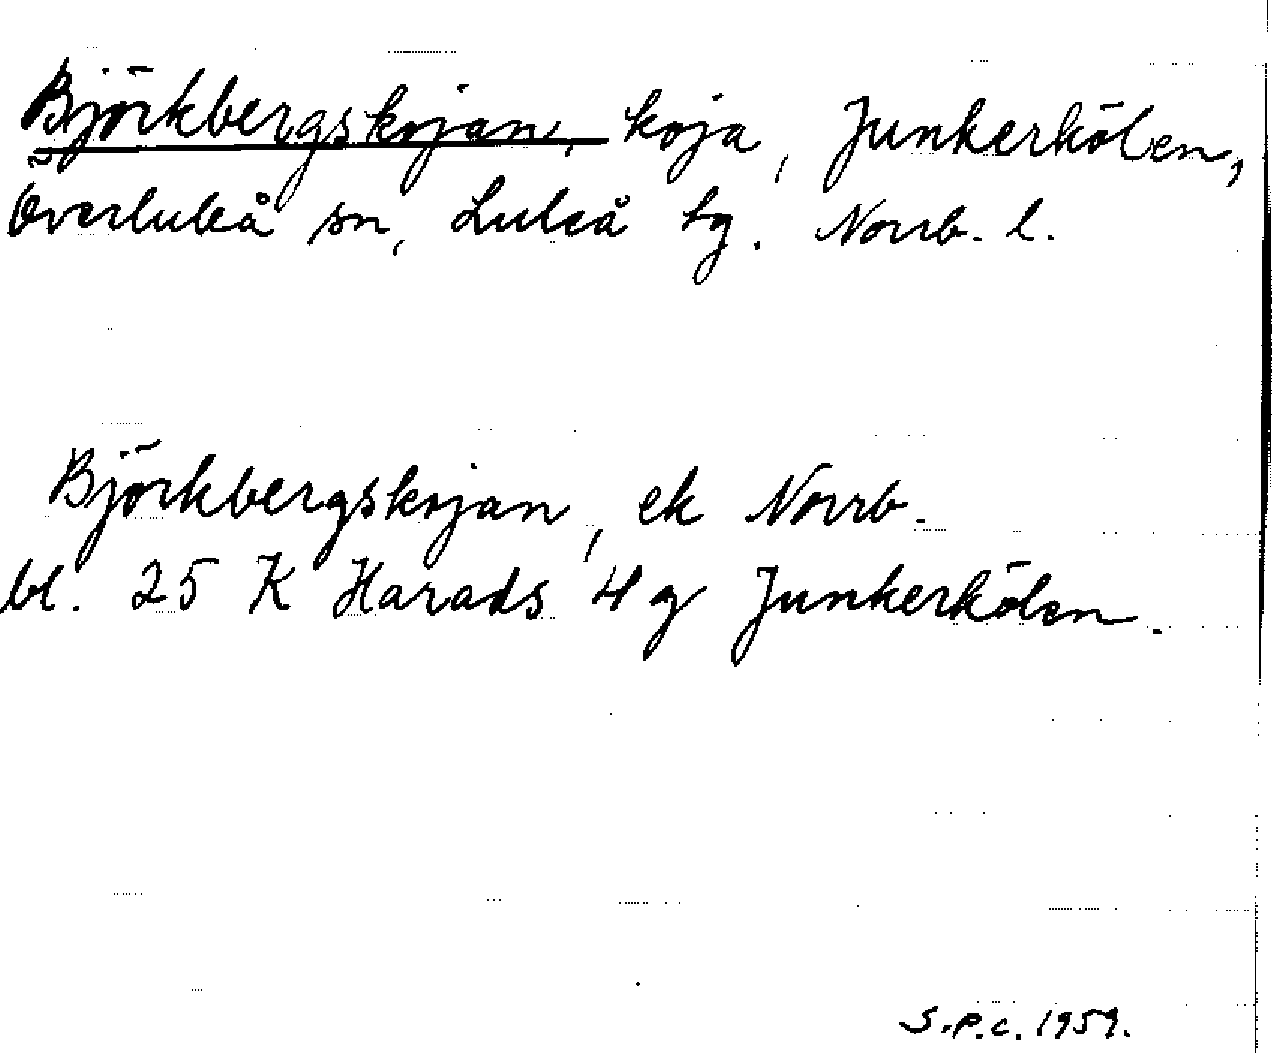 Björkbergskojan, koja, Junkerkölen,
Överluleå sn, Luleå tg. Norrb. l.
Björkbergskojan, ek Norrb.
bl. 25 K Harads 4 g Junkerkölen.
S.P.C. 1959.